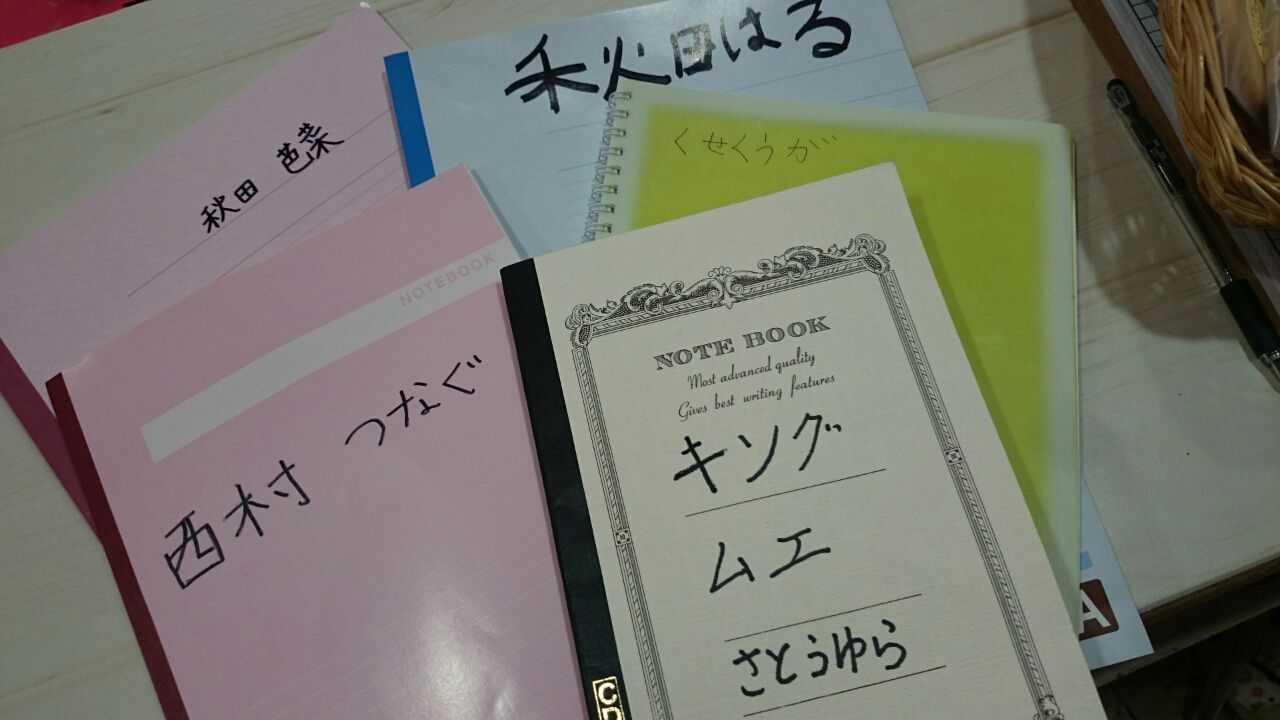 秋田はる
くせくうが
秋田 芭菜
NOTEBOOK
西村 つなぐ
NOTE BOOK
Most advanced quality
Gives best writing features
キング
ムエ
さとうゆら
CD
A